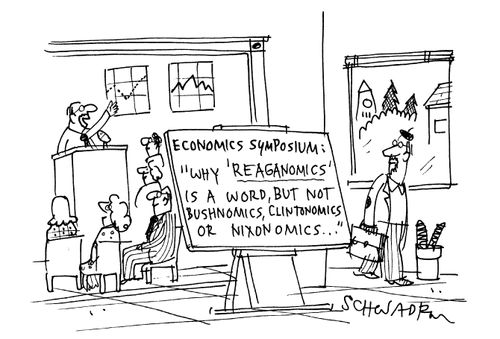 ECONOMICS SYMPOSIUM:
"WHY 'REAGANOMICS'
IS A WORD, BUT NOT
BUSHNOMICS, CLINTONOMICS
OR NIXONOMICS..."
SCHWADRON